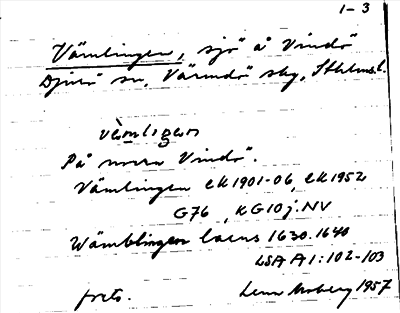 1-3
Vämlingen, sjö å Vindö
Djurö sn, Värmdö skg, Sthlms l.
vämligen
På norra Vindö.
Vämlingen EK1901-06, EK1952
G76, KG10j.NV
Wämblingen lacus 1630.1640
LSA A1:102-103
frts. Lenn Moberg 1957